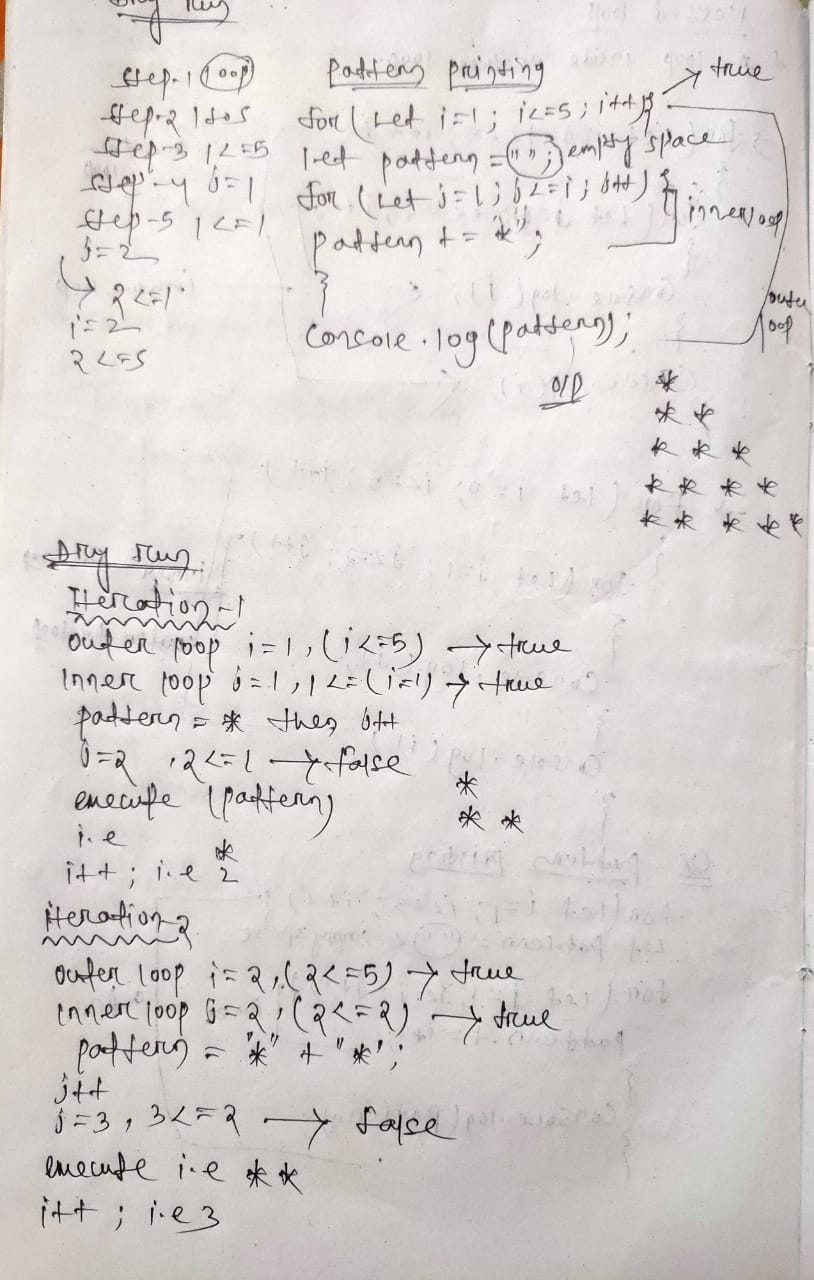 Dry run
Step-1 loop
Step-2 1 to 5
Step-3 1<=5
Step-4 j=1
Step-5 1<=1
j=2
2<=1
i=2
2<=5
Pattern printing
for (let i=1; i<=5; i++){ → true
let pattern = " "; empty space
for (let j=1; j<=i; j++) {
pattern += "*";
inner loop
}
console.log(pattern);
outer loop
O/P
*
* *
* * *
* * * *
* * * * *
Dry run
Iteration-1
outer loop i=1, (i<=5) → true
Inner loop j=1, 1<=(i=1) → true
pattern = * then j++
j=2, 2<=1 → false
execute (pattern)
i.e *
* *
*
i++; i.e 2
iteration 2
outer loop i=2, (2<=5) → true
inner loop j=2, (2<=2) → true
pattern = "*" + "*";
j++
j=3, 3<=2 → false
execute i.e * *
i++; i.e 3